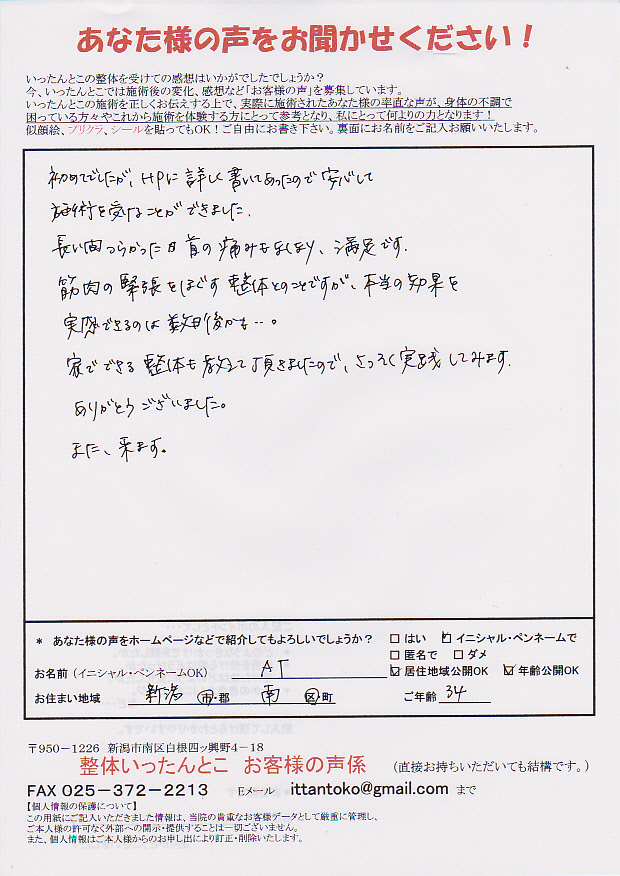 あなた様の声をお聞かせください！
いったんとこの整体を受けての感想はいかがでしたでしょうか？
今、いったんとこでは施術後の変化、感想など「お客様の声」を募集しています。
いったんとこの施術を正しくお伝えする上で、実際に施術されたあなた様の率直な声が、身体の不調で
困っている方々やこれから施術を体験する方にとって参考となり、私にとって何よりの力となります！
似顔絵、プリクラ、シールを貼ってもOK！ご自由にお書き下さい。裏面にお名前をご記入お願いいたします。
初めてでしたが、HPに詳しく書いてあったので安心して
施術を受けることができました。
長い間つらかった肩首の痛みもなくなり、満足です。
筋肉の緊張をほぐす整体とのことですが、本当の効果を
実感できるのは数日後かも…。
家でできる整体も教えて頂きましたので、さっそく実践してみます。
ありがとうございました。
また、来ます。
* あなた様の声をホームページなどで紹介してもよろしいでしょうか？ □ はい ☑ イニシャル・ペンネームで
□ 匿名で □ ダメ
お名前（イニシャル・ペンネームOK） AT ☑ 居住地域公開OK ☑ 年齢公開OK
お住まい地域 新潟 市・郡 南 区・町 ご年齢 34
〒950－1226 新潟市南区白根四ッ興野4－18
整体いったんとこ お客様の声係 （直接お持ちいただいても結構です。）
FAX 025－372－2213 Eメール ittantoko@gmail.com まで
【個人情報の保護について】
この用紙にご記入いただきました情報は、当院の貴重なお客様データとして厳重に管理し、
ご本人様の許可なく外部への開示・提供することは一切ございません。
また、個人情報はご本人様からのお申し出により訂正・削除いたします。